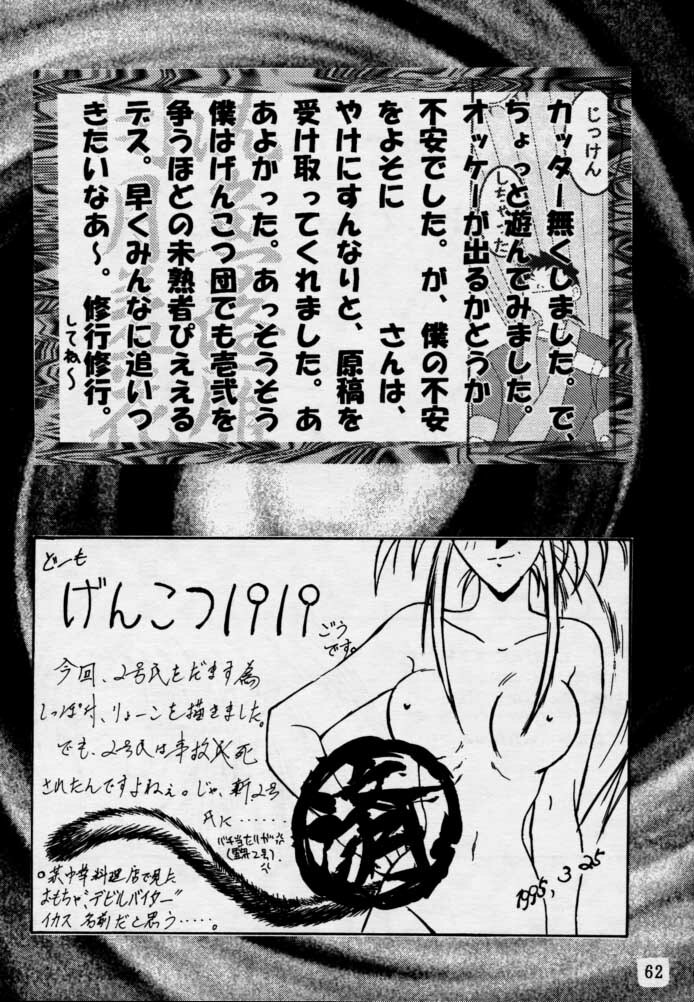 じっけん
しちゃった
カッター無くしました。で、
ちょっと遊んでみました。
オッケーが出るかとうか
不安でした。が、僕の不安
をよそに　　　さんは、
やけにすんなりと、原稿を
受け取ってくれました。あ
あよかった。あっそうそう
僕はげんこつ団でも壱弐を
争うほどの未熟者ぴええる
デス。早くみんなに追いつ
きたいなあ〜。修行修行。
してね〜
どーも
げんこつ1919
ごう
です。
今回、2号氏をだます為
しっぽ付、りょーこを描きました。
でも、2号氏は事故民死
されたんですよねぇ。じゃ、新2号
氏に……
バチ当たりが
済
。某中華料理店で見た
おもちゃ、"デビルバイダー"
イカス名前だと思う……。
1995, 3, 25
62